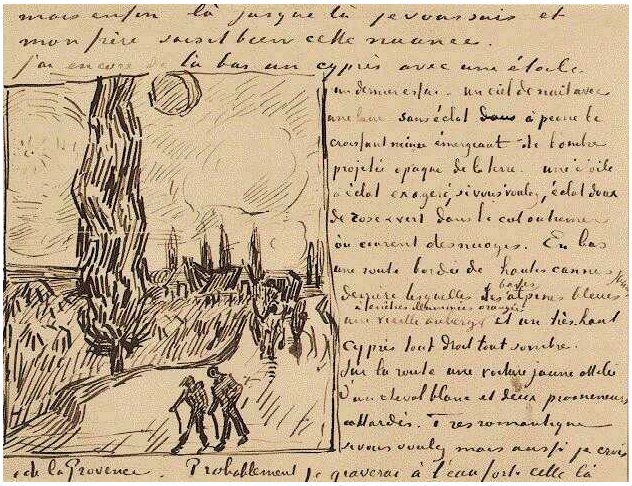 mais enfin là jusque là je vous suis et
mon frère saisit bien cette nuance.
j'ai encore de là bas un cyprès avec une étoile.
un dernier essai - un ciel de nuit avec
une lune sans éclat à peine le
croissant mince émergeant de l'ombre
projetée opaque de la terre. une étoile
à éclat exagéré, si vous voulez, éclat doux
de rose et vert dans le ciel outremer
où courent des nuages. En bas
une route bordée de hautes cannes jaunes
derrière lesquelles les basses alpines bleues
une vieille auberge à fenêtres illuminées orangées et un très haut
cyprès tout droit tout sombre.
Sur la route une voiture jaune attelée
d'un cheval blanc et deux promeneurs
attardés. Très romantique
si vous voulez mais aussi je crois
de la Provence. Probablement je graverai à l'eau forte celle là